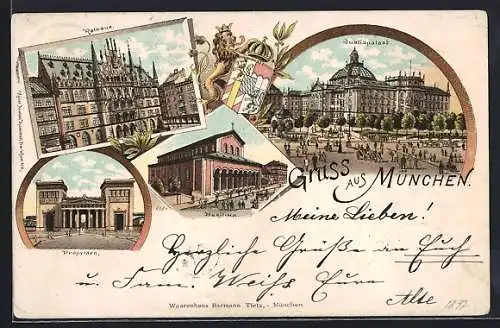 Rathaus.
Justizpalast.
Basilika.
Propyläen.
Gruss aus München.
Meine Lieben!
Herzliche Grüße an Euch
u. Fam. Weihs Eure
Alte
1897
Waarenhaus Hermann Tietz, - München